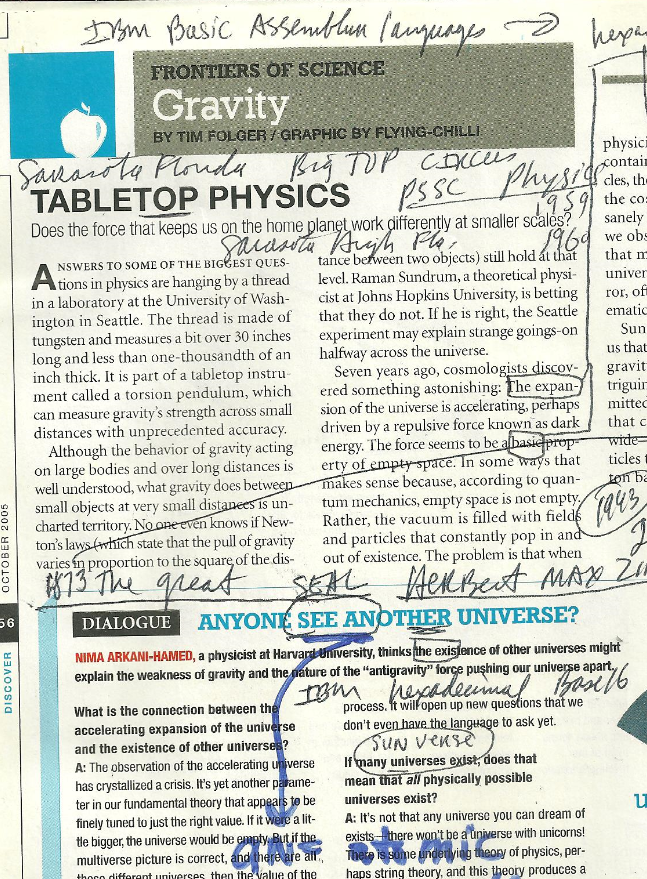 IBM Basic Assembler languages
FRONTIERS OF SCIENCE
Gravity
BY TIM FOLGER / GRAPHIC BY FLYING-CHILLI
Sarasota Florida Big TOP CIRCUS
PSSC Physics
TABLETOP PHYSICS
1959
Does the force that keeps us on the home planet work differently at smaller scales?
1960
Sarasota High Fla.
ANSWERS TO SOME OF THE BIGGEST QUES-
tions in physics are hanging by a thread
in a laboratory at the University of Wash-
ington in Seattle. The thread is made of
tungsten and measures a bit over 30 inches
long and less than one-thousandth of an
inch thick. It is part of a tabletop instru-
ment called a torsion pendulum, which
can measure gravity's strength across small
distances with unprecedented accuracy.
Although the behavior of gravity acting
on large bodies and over long distances is
well understood, what gravity does between
small objects at very small distances is un-
charted territory. No one even knows if New-
ton's laws (which state that the pull of gravity
varies in proportion to the square of the dis-
tance between two objects) still hold at that
level. Raman Sundrum, a theoretical physi-
cist at Johns Hopkins University, is betting
that they do not. If he is right, the Seattle
experiment may explain strange goings-on
halfway across the universe.
Seven years ago, cosmologists discov-
ered something astonishing: The expan-
sion of the universe is accelerating, perhaps
driven by a repulsive force known as dark
energy. The force seems to be a basic prop-
erty of empty space. In some ways that
makes sense because, according to quan-
tum mechanics, empty space is not empty.
Rather, the vacuum is filled with fields
and particles that constantly pop in and
out of existence. The problem is that when
physici
contain
cles, the
the cos
sanely
we obs
that m
univer
ror, oft
ematic
Sun
us that
gravit
triguin
mitted
that c
wide
ticles t
ton ba
1943
#13 The great SEAL HERBERT MAX
OCTOBER 2005
56
DISCOVER
DIALOGUE ANYONE SEE ANOTHER UNIVERSE?
NIMA ARKANI-HAMED, a physicist at Harvard University, thinks the existence of other universes might
explain the weakness of gravity and the nature of the "antigravity" force pushing our universe apart.
IBM hexadecimal Base 16
What is the connection between the
accelerating expansion of the universe
and the existence of other universes?
A: The observation of the accelerating universe
has crystallized a crisis. It's yet another parame-
ter in our fundamental theory that appears to be
finely tuned to just the right value. If it were a lit-
tle bigger, the universe would be empty. But if the
multiverse picture is correct, and there are all
these different universes, then the value of the
process. It will open up new questions that we
don't even have the language to ask yet.
SUN VERSE
If many universes exist, does that
mean that all physically possible
universes exist?
A: It's not that any universe you can dream of
exists—there won't be a universe with unicorns!
There is some underlying theory of physics, per-
haps string theory, and this theory produces a